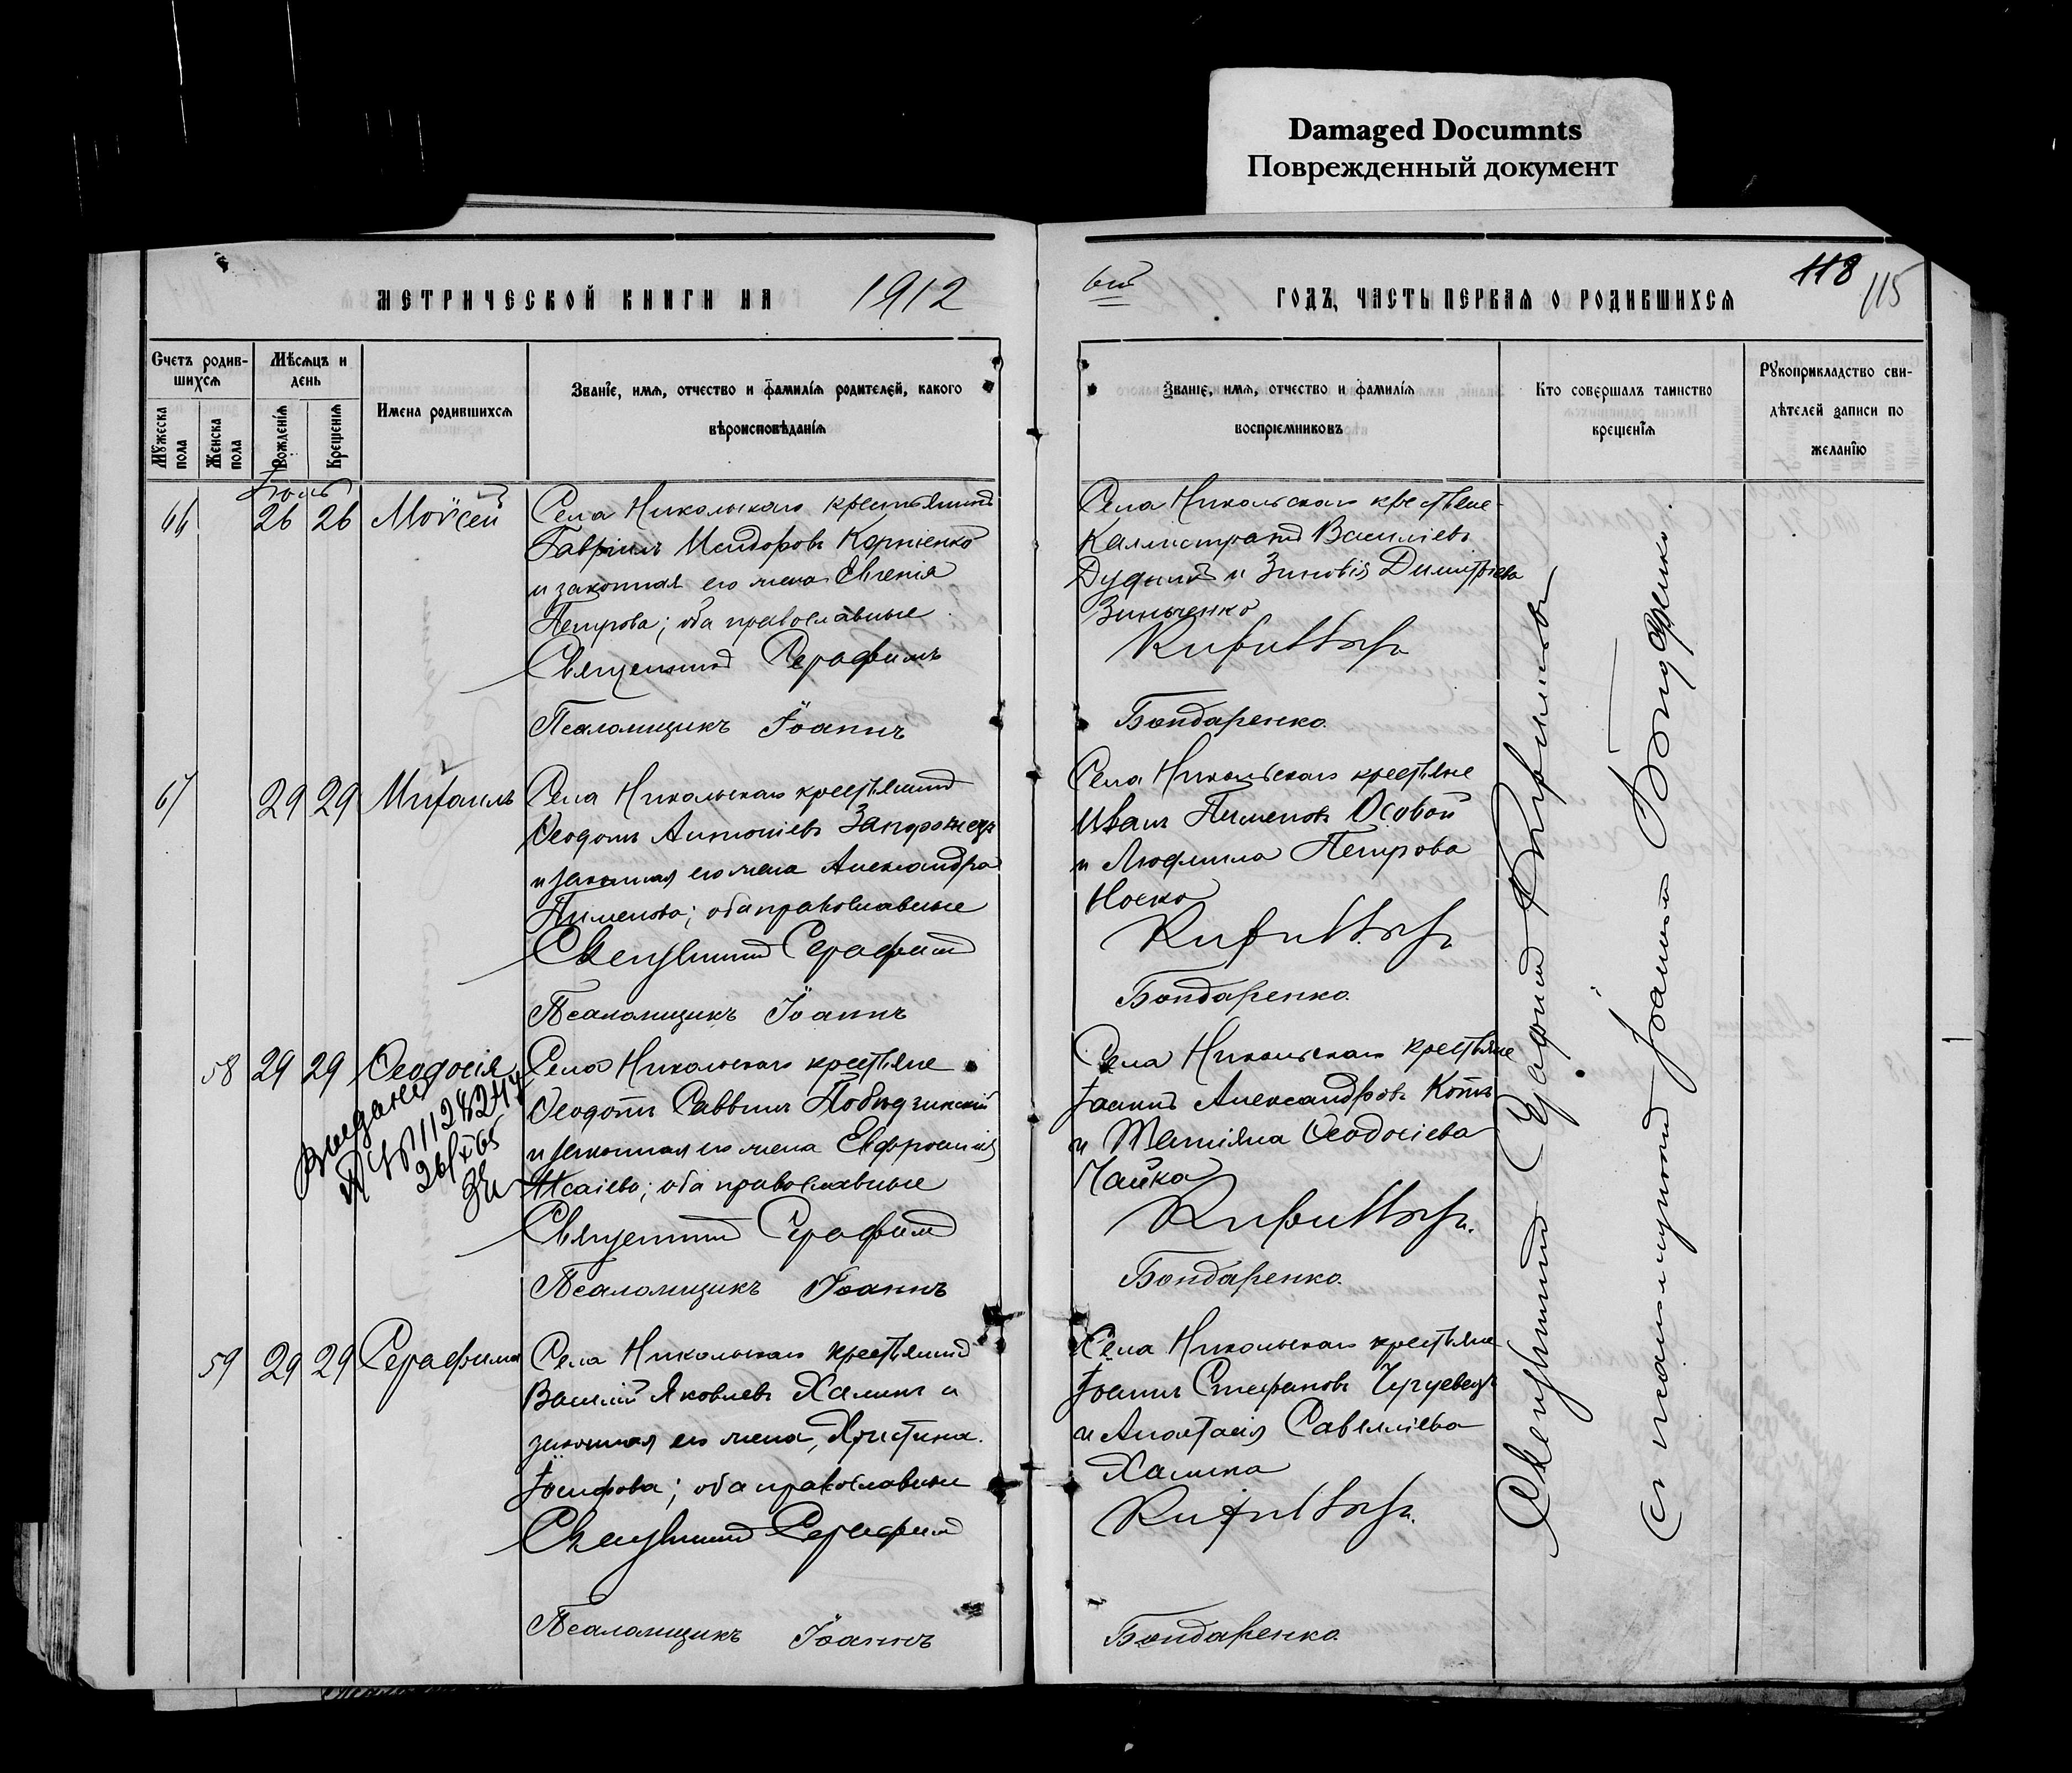 Damaged Documnts
Поврежденный документ
118
115
МЕТРИЧЕСКОЙ КНИГИ НА 1912
ГОДЪ, ЧАСТЬ ПЕРВАЯ О РОДИВШИХСЯ
Счетъ родив-
шихся
Мѣсяцъ и
день
Мужеска пола
Женска пола
Рожденія
Крещенія
Имена родившихся
Званіе, имя, отчество и фамилія родителей, какого
вѣроисповѣданія
Званіе, имя, отчество и фамилія
воспріемниковъ
Кто совершалъ таинство
крещенія
Рукоприкладство сви-
дѣтелей записи по
желанію
Іюль
66 26 26 Моѵсей
Села Никольскаго крестьянинъ
Гавріилъ Исидоровъ Корніенко
и законная его жена Евгенія
Петрова; оба православные
Священникъ Серафимъ
Псаломщикъ Іоаннъ
Села Никольскаго крестьяне
Каллистратъ Василіевъ
и Зиновія Димитріева
Зинченко
Бондаренко.
67 29 29 Михаилъ
Села Никольскаго крестьянинъ
Ѳеодотъ Антоніевъ Запорожецъ
и законная его жена Александра
Пименова; оба православные
Священникъ Серафимъ
Псаломщикъ Іоаннъ
Села Никольскаго крестьяне
Иванъ Пименовъ Особой
и Людмила Петрова
Носко
Бондаренко.
58 29 29 Ѳеодосія
Села Никольскаго крестьяне
Ѳеодотъ Саввинъ
и законная его жена Евфросинія
Исаіева; оба православные
Священникъ Серафимъ
Псаломщикъ Іоаннъ
Села Никольскаго крестьяне
Іоаннъ Александровъ Котъ
и Татіана Ѳеодосіева
Чайка
Бондаренко.
59 29 29 Серафима
Села Никольскаго крестьянинъ
Василій Яковлевъ Халинъ и
законная его жена, Христина
Іосифова; оба православные
Священникъ Серафимъ
Псаломщикъ Іоаннъ
Села Никольскаго крестьяне
Іоаннъ Стефановъ Чугуевецъ
и Анастасія Савелліева
Халина
Бондаренко.
Священникъ Серафимъ
съ псаломщикомъ Іоанномъ Бондаренко.